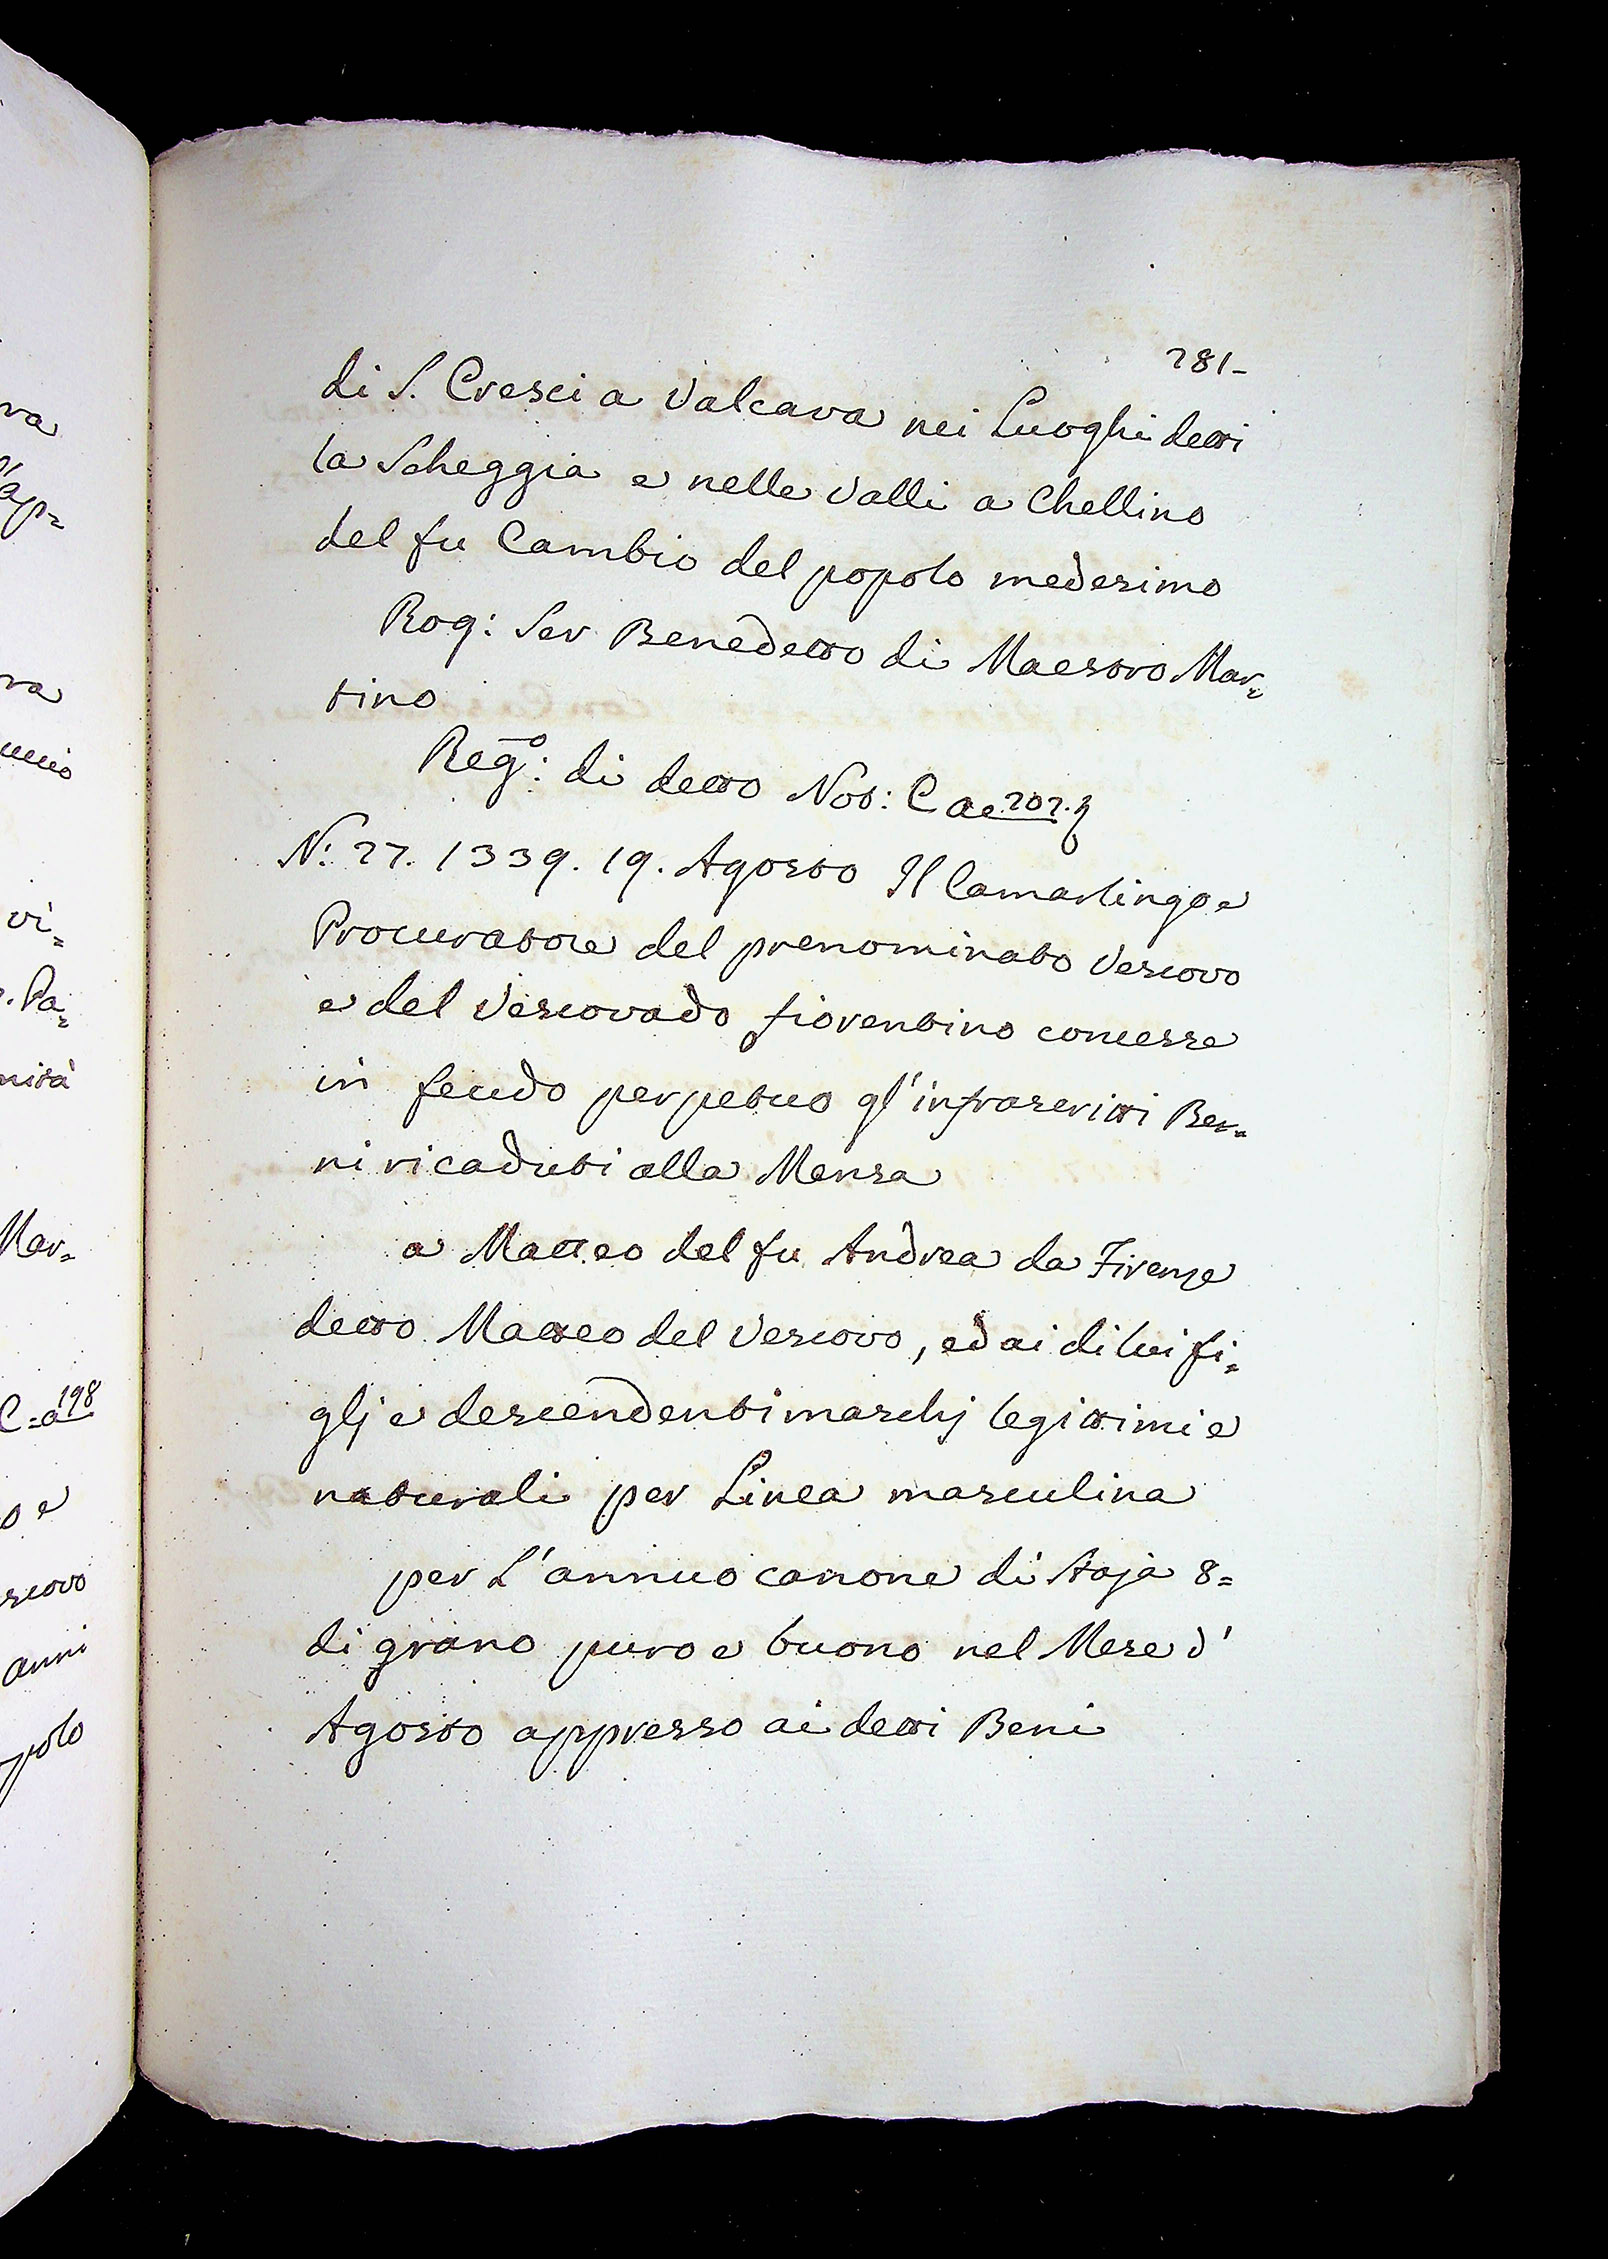 281-
di S. Cresci a Valcava nei Luoghi detti
la Scheggia e nelle Valli a Chellino
del fu Cambio del popolo medesimo
Rog: Ser Benedetto di Maestro Mar=
tino
Reg.o: di detto Not: C ae 202.
N: 27. 1339. 19. Agosto Il Camarlingo e
Procuratore del prenominato Vescovo
e del Vescovado fiorentino concesse
in feudo perpetuo gl'infrascritti Be=
ni ricaduti alla Mensa
a Matteo del fu Andrea da Firenze
detto Matteo del Vescovo, ed ai di lui fi=
glj e descendenti maschj legittimi e
naturali per Linea masculina
per L'annuo canone di staja 8=
di grano puro e buono nel Mese d'
Agosto appresso ai detti Beni
va
va
vi=
Pa=
nità
Mar=
C=a 198
o e
scovo
anni
polo